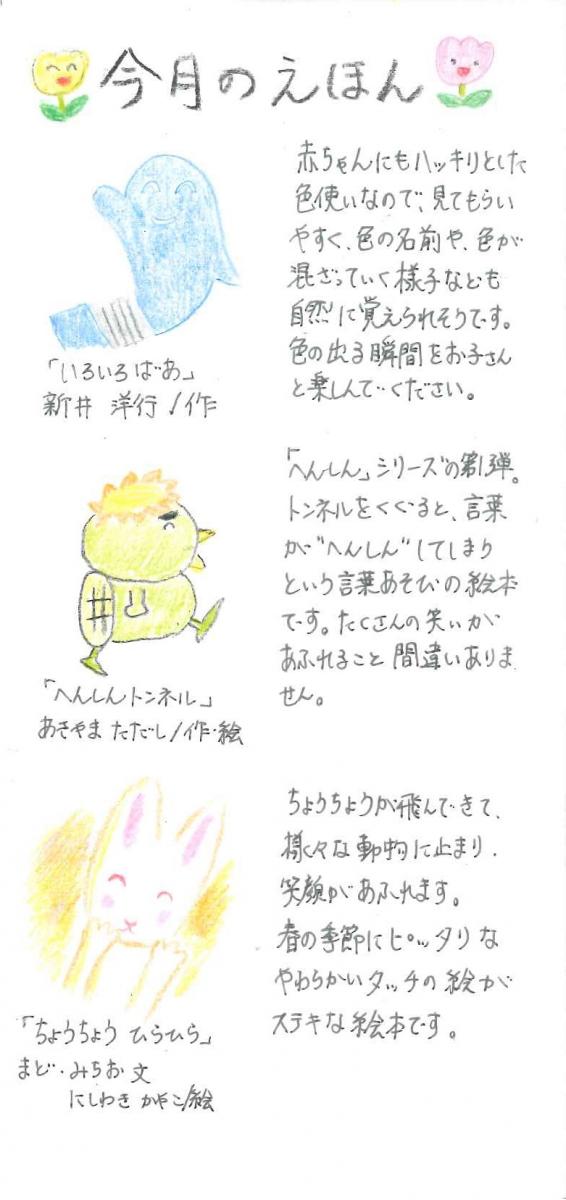 今月のえほん
赤ちゃんにもハッキリとした
色使いなので、見てもらい
やすく、色の名前や、色が
混ざっていく様子なども
自然に覚えられそうです。
色の出る瞬間をお子さん
と楽しんでください。
「いろいろばあ」
新井 洋行/作
「へんしん」シリーズの第1弾。
トンネルをくぐると、言葉
が"へんしん"してしまう
という言葉あそびの絵本
です。たくさんの笑いが
あふれること間違いありま
せん。
「へんしんトンネル」
あきやま ただし/作・絵
ちょうちょうが飛んできて、
様々な動物に止まり、
笑顔があふれます。
春の季節にピッタリな
やわらかいタッチの絵が
ステキな絵本です。
「ちょうちょう ひらひら」
まど・みちお 文
にしわき かやこ/絵